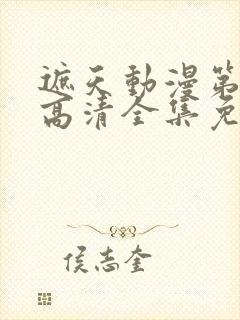 遮天動漫第
高清全集免
侯志奎